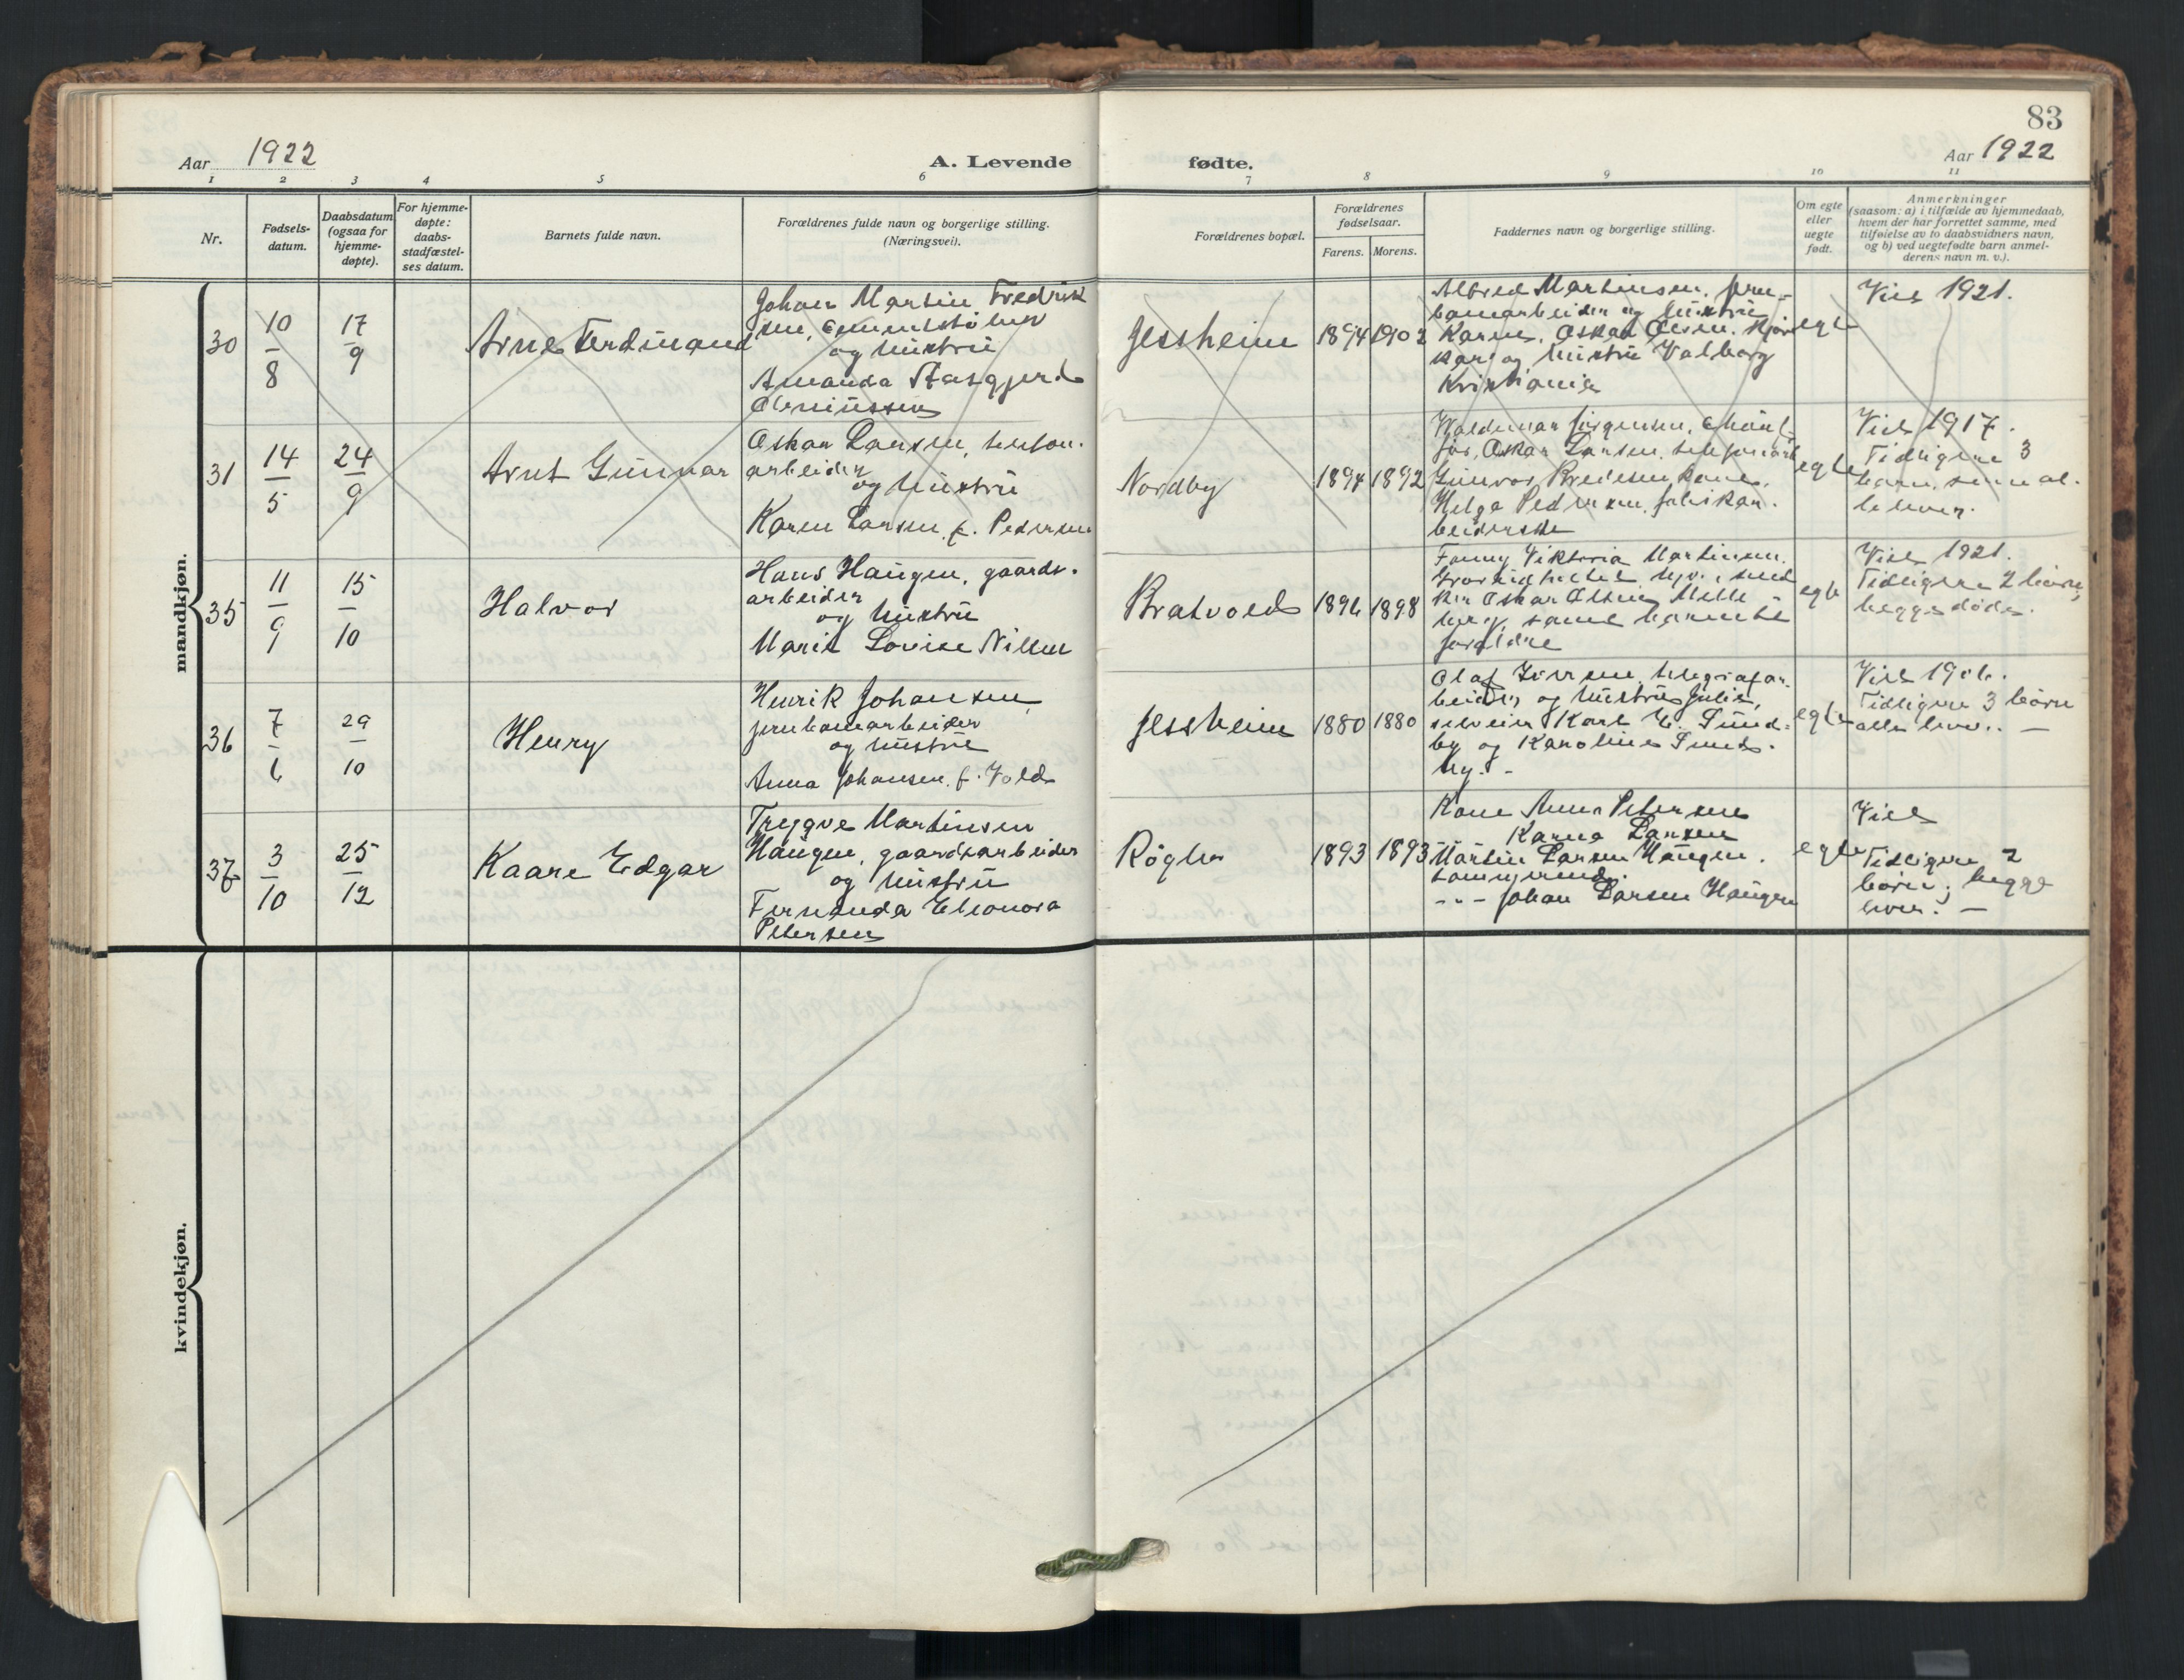 83
Aar 1922
A. Levende
fødte.
Aar 1922
1 2 3 4 5 6 7 8 9 10 11
Nr.
Fødsels-
datum.
Daabsdatum
(ogsaa for
hjemme-
døpte).
For hjemme-
døpte:
daabs-
stadfæstel-
ses datum.
Barnets fulde navn.
Forældrenes fulde navn og borgerlige stilling.
(Næringsvei).
Forældrenes bopæl.
Forældrenes
fødselsaar.
Farens. Morens.
Faddernes navn og borgerlige stilling.
Om egte
eller
uegte
født.
Anmerkninger
(saasom: a) i tilfælde av hjemmedaab,
hvem der har forrettet samme, med
tilføielse av to daabsvidners navn,
og b) ved uegtefødte barn anmel-
derens navn m. v.).
mandkjøn.
30
10
8
17
9
Arne Ferdinand
Johan Martin Fredrik
sen, cementstøber
og hustru
Amanda
Jessheim
1894 1902
Alfred Martinsen, jern-
banearbeider og hustru
Karen, Oskar Olsen,
og hustru Valborg
Kristiania
egte
Viet 1921.
31
14
5
24
9
Arnt Gunnar
Oskar Larsen, telefon-
arbeider
og hustru
Karen Larsen f. Pedersen
Nordby
1894 1892
Waldemar Jørgensen, chauf-
før, Oskar Larsen, telefonarb
Gunvor Bredesen, kone,
Helga Pedersen, fabrikar-
beiderske
egte
Viet 1917.
Tidligere 3
barn, som al-
le lever.
35
11
9
15
10
Halvor
Hans Haugen, gaards-
arbeider
og hustru
Marie Lovise Nilsen
Bratvold
1896 1898
Fanny Viktoria Martinsen,
Oskar Olsen
samt barnets
forældre
egte
Viet 1921.
Tidligere 2 børn,
begge døde.
36
7
6
29
10
Henry
Henrik Johansen,
jernbanearbeider
og hustru
Anna Johansen f. Vold
Jessheim
1880 1880
Olaf Iversen, telegrafar-
beider og hustru Julie,
selveier Karl E. Sund-
by og Karoline Sund-
by. -
egte
Viet
Tidligere 3 børn
alle lev.. —
37
3
10
25
12
Kaare Edgar
Trygve Martinsen
Haugen, gaardsarbeider
og hustru
Fernanda Eleonora
Petersen
Røgler
1893 1893
Kone Anna Petersen
Karna Larsen
Martin Larsen Haugen.
tømmermand.
- " - Johan Larsen Haugen
egte
Viet
Tidligere 2
børn; begge
lever. —
kvindekjøn.